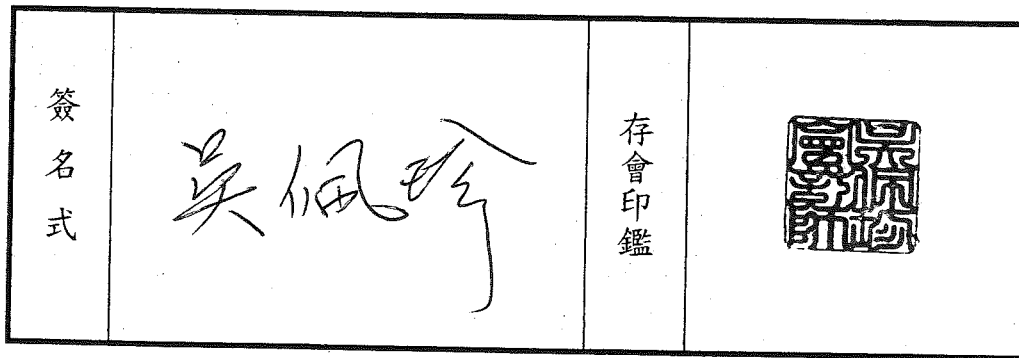 簽名式
吳佩珍
存會印鑑
吳佩珍
會計師